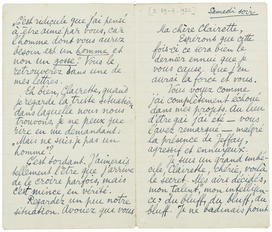 C'est ridicule que j'ai pensé
à être aimé par vous, car
l'homme dont vous aurez
besoin est un homme et
non un gosse! Vous le
retrouverez dans une de
mes lettres.
Eh bien, Clairette, quand
je regarde la triste situation
dans laquelle nous nous
trouvons je ne peux que
rire en me demandant:
"Mais ne suis-je pas un
homme?"
C'est bordant. J'aimerais
tellement l'être que j'arrive
de le croire parfois, mais
c'est mince, en vérité.
Regardez un peu notre
situation. Avouez que vous
Samedi soir
Ma chère Clairette,
Espérons que cette
fois-ci ce sera bien le
dernier ennui que je
vous cause, et que j'en
aurai la force de vous.
Comme vous voyez
j'ai complètement échoué
dans mes projets. Au lieu
d'être gai j'ai été - vous
l'avez remarqué - malgré
la présence de Jeffay,
agressif et ennuyeux.
Je suis un grand imbé-
cile, Clairette chérie, voilà
le secret. Mes airs décidés,
mon talent, mon intelligen-
ce: du bluff, du bluff, du
bluff. Je ne badinais point